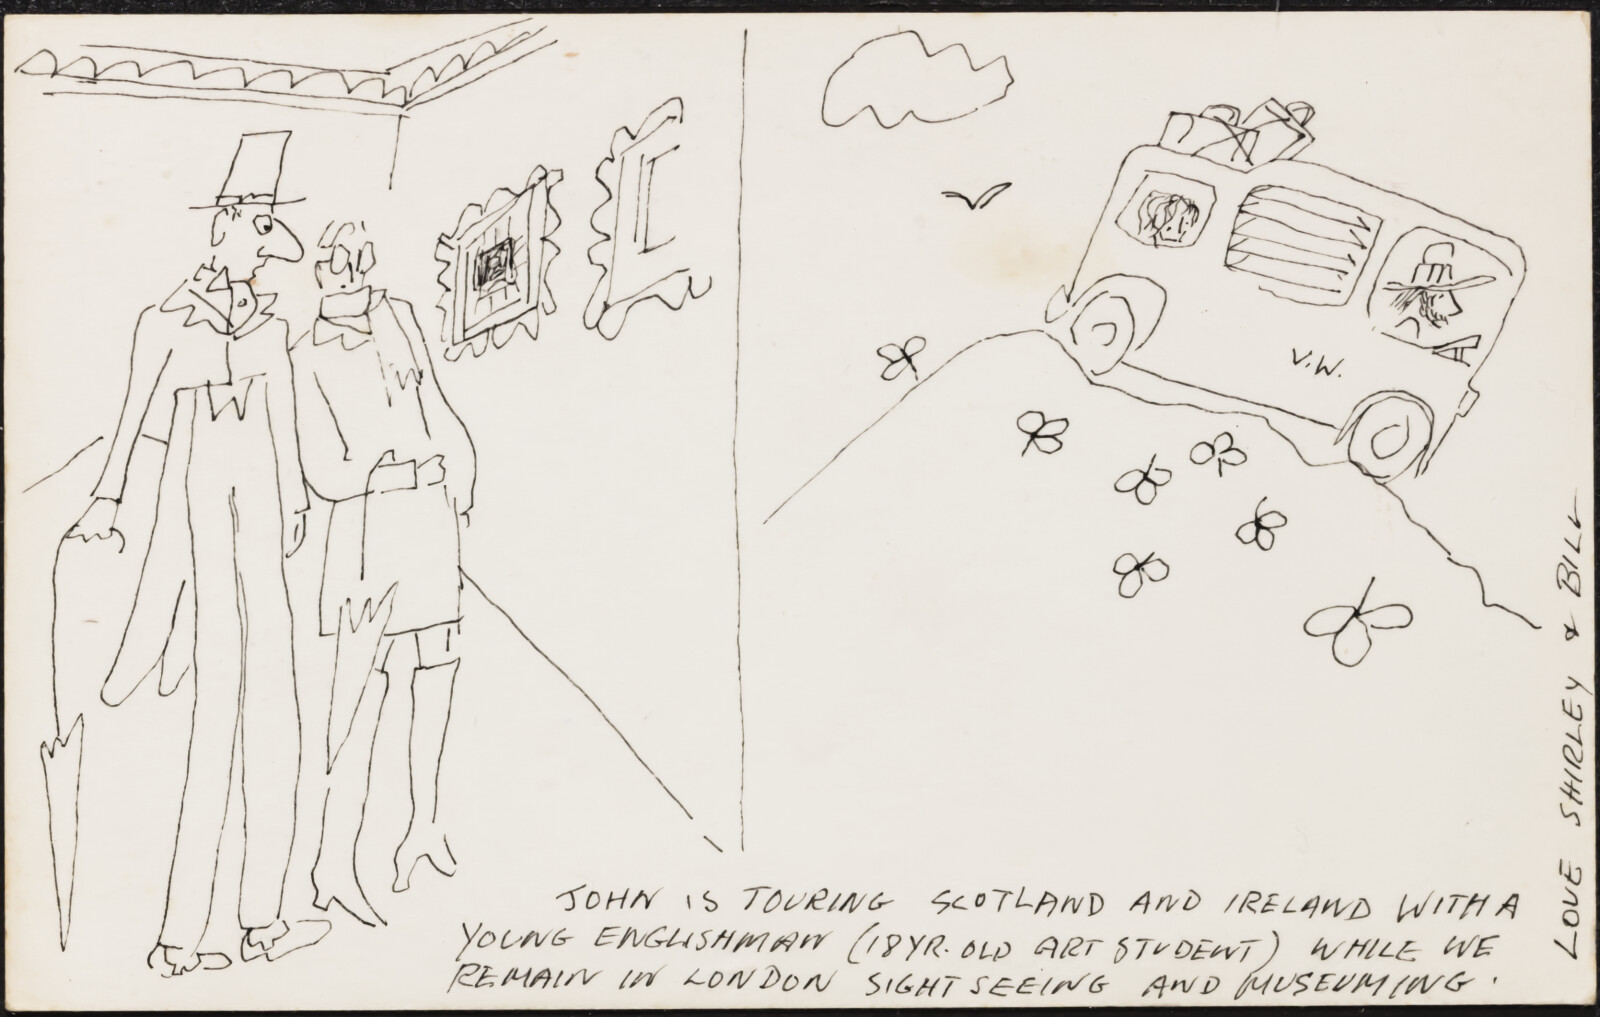 V.W.
JOHN IS TOURING SCOTLAND AND IRELAND WITH A
YOUNG ENGLISHMAN (18 YR. OLD ART STUDENT) WHILE WE
REMAIN IN LONDON SIGHTSEEING AND MUSEUMING.
LOVE SHIRLEY & BILL